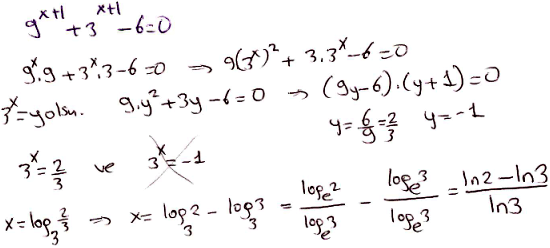 9^(x+1) + 3^(x+1) - 6 = 0
9^x.9 + 3^x.3 - 6 = 0 ⇒ 9(3^x)^2 + 3.3^x - 6 = 0
3^x = y olsn. 9.y^2 + 3y - 6 = 0 → (9y-6).(y+1) = 0
y = 6/9 = 2/3 y = -1
3^x = 2/3 ve 3^x = -1
x = log_3 2/3 ⇒ x = log_3 2 - log_3 3 = log_e 2/log_e 3 - log_e 3/log_e 3 = (ln2 - ln3)/ln3